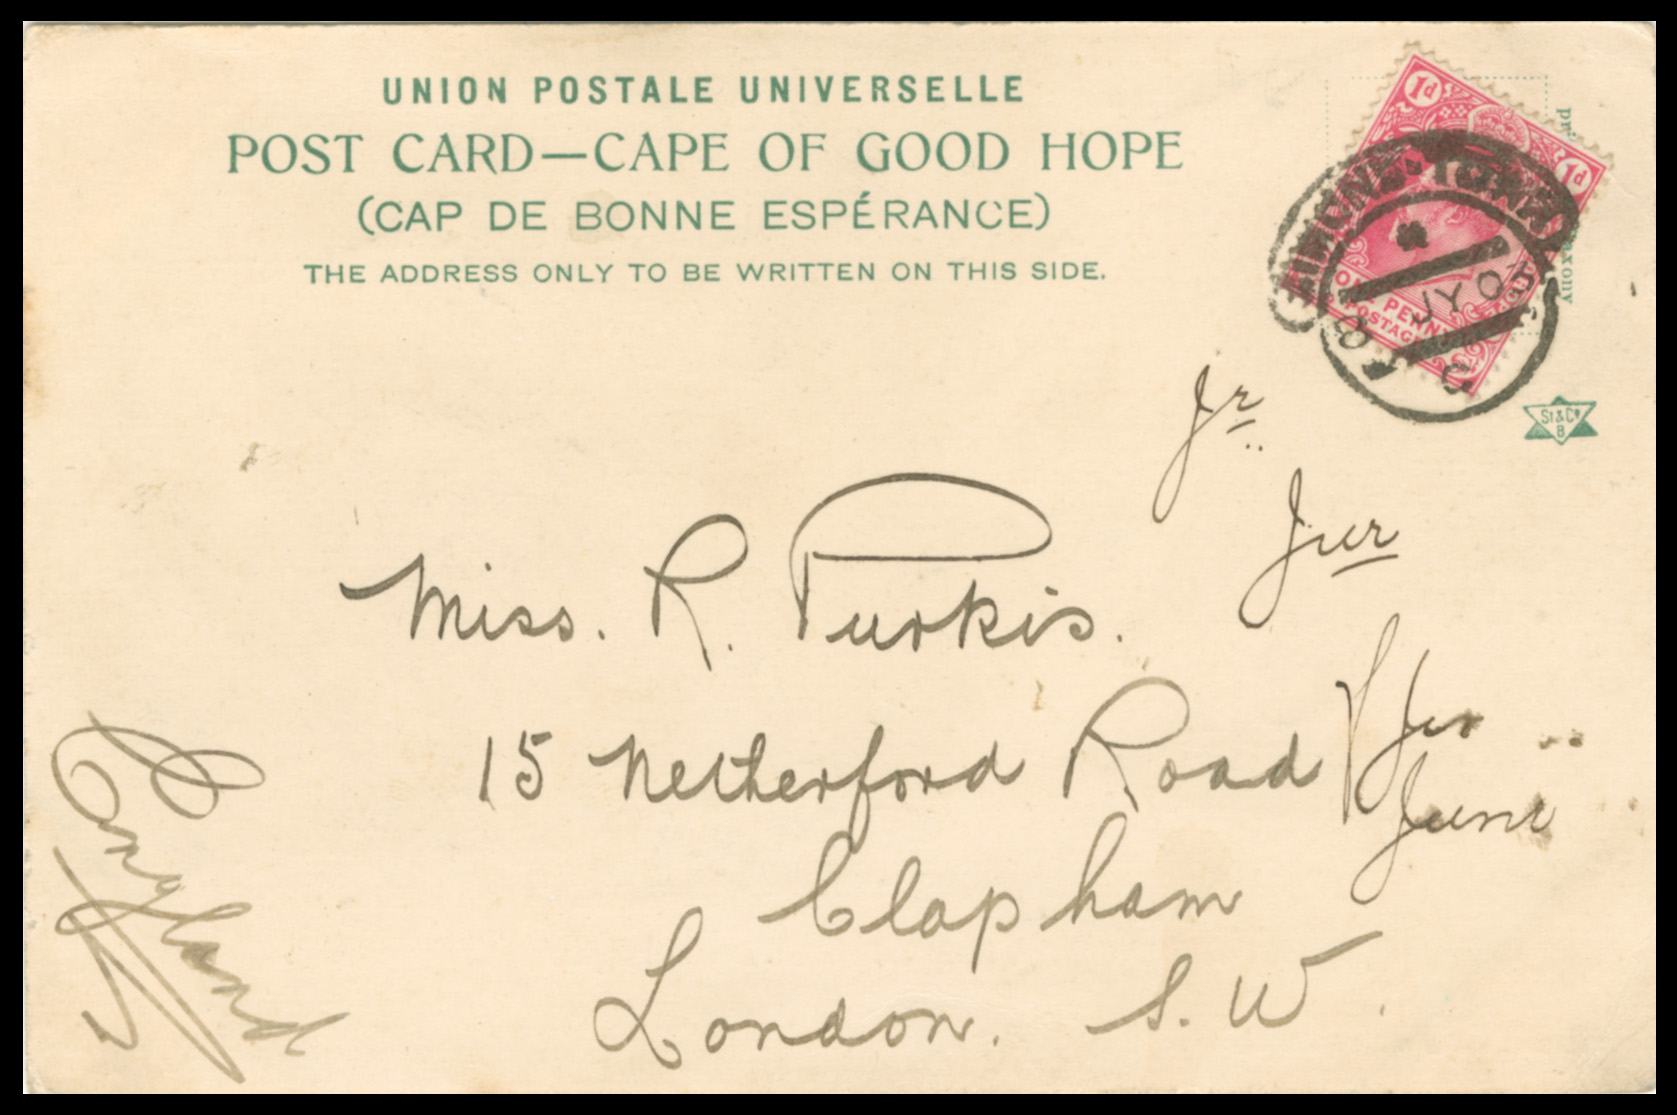 UNION POSTALE UNIVERSELLE
POST CARD—CAPE OF GOOD HOPE
(CAP DE BONNE ESPÉRANCE)
THE ADDRESS ONLY TO BE WRITTEN ON THIS SIDE.
1d 1d
ONE PENNY
POSTAGE
JY 0
St & Co
B
Jr
Jur
Miss. R. Purkis.
15 Netherford Road
Clapham
London. S. W.
England